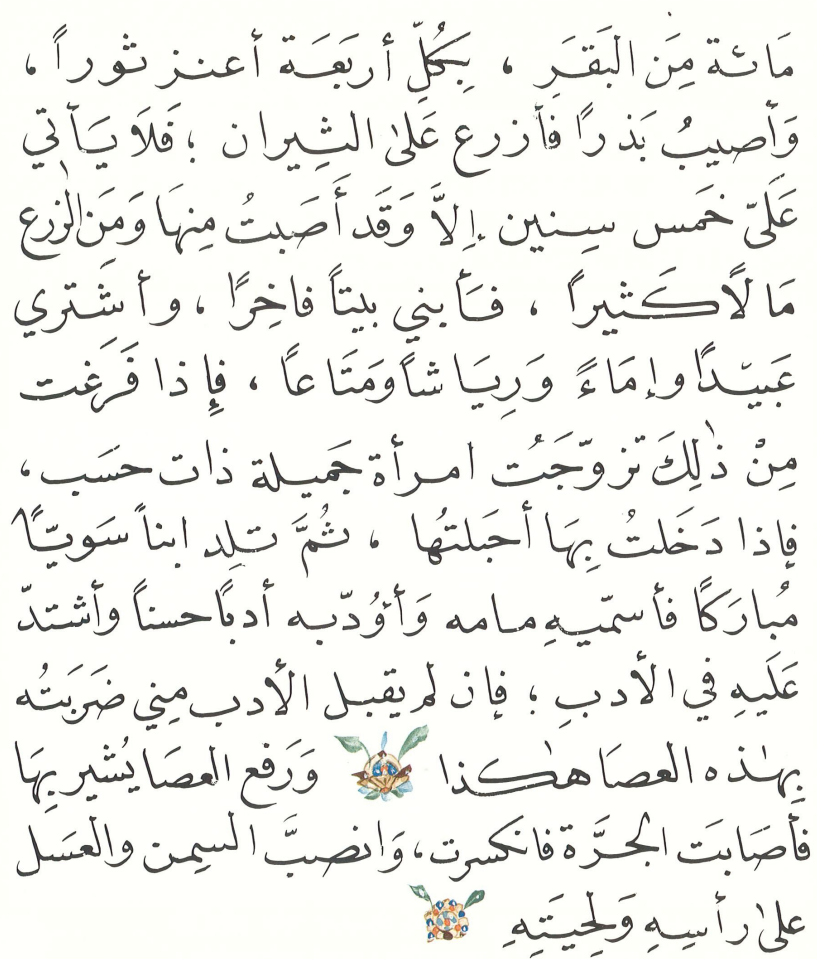 مَائة مِنَ البَقَرَ ، بِكُلِّ أربَعَة أعنز ثوراً ،
وَأصيبُ بَذرًا فَأزرع عَلىٰ الثِيران ؛ فَلَا يَأتي
عَلَيّ خَمس سِنين إلاَّ وَقَد أَصَبتُ مِنهَا وَمَن الزرع
مَالًا كَثيراً ، فَأبني بيتاً فاخِرًا ، وأشتري
عَبيدًا وإمَاءً وَرِيَاشاً وَمَتَاعاً ، فإِذا فَرَغت
مِنْ ذٰلِكَ تزوّجَتُ امرأة جَميلة ذات حسَب ،
فإذا دَخَلتُ بِهَا أحبَلتُها ، ثُمَّ تلِد ابناً سَويّاً
مُبارَكًا فأسمّيهِ مامه وَأؤُدّبه أدبًا حسناً وأشتدّ
عَلَيهِ في الأدبِ ؛ فإن لم يقبل الأدب مِني ضَرَبتُه
بِهٰذه العصَا هٰكذا وَرَفع العصَا يُشير بِهَا
فأصَابَت الجرَّة فانكسرت ، وَانصبَّ السمن والعَسَل
علىٰ رأسِهِ وَلِحيَتِهِ